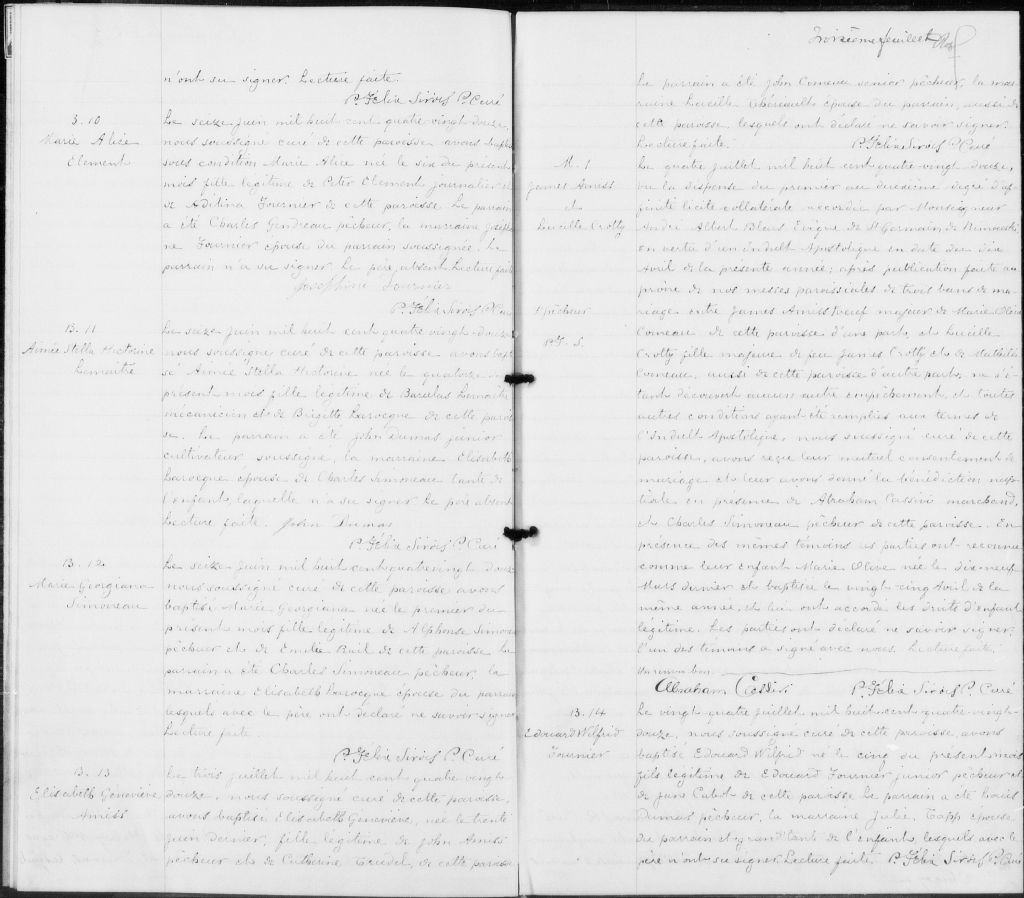 n'ont su signer. Lecture faite.
P. Félix Sirois P. Curé
B. 10
Marie Alice
Element
Le seize juin mil huit cent quatre vingt douze,
nous soussigné curé de cette paroisse avons baptisé
sous condition Marie Alice née le six du présent
mois fille légitime de Peter Element journalier et
de Aditina Fournier de cette paroisse. Le parrain
a été Charles Gendreau pêcheur, la marraine Joséphi
ne Fournier épouse du parrain soussignée. Le
parrain n'a su signer. Le père absent. Lecture faite
Josephine Fournier
P. Félix Sirois P. Curé
B. 11
Aimée Stella Hectorine
Lemaitre
Le seize juin mil huit cent quatre vingt douze
nous soussigné curé de cette paroisse avons bapti
sé Aimée Stella Hectorine née le quatorze du
présent mois fille légitime de Lemaitre
mécanicien et de Brigitte Larocque de cette parois
se. Le parrain a été John Dumas junior
cultivateur soussigné, la marraine Elisabeth
Larocque épouse de Charles Simoneau tante de
l'enfant, laquelle n'a su signer. Le père absent
Lecture faite. John Dumas
P. Félix Sirois P. Curé
B. 12
Marie Georgiana
Simoneau
Le seize juin mil huit cent quatre vingt douze
nous soussigné curé de cette paroisse avons
baptisé Marie Georgiana née le premier du
présent mois fille légitime de Alphonse Simoneau
pêcheur et de Emelie Bail de cette paroisse. Le
parrain a été Charles Simoneau pêcheur, la
marraine Elisabeth Larocque épouse du parrain
lesquels avec le père ont déclaré ne savoir signer
Lecture faite.
P. Félix Sirois P. Curé
B. 13
Elisabeth Geneviève
Amiss
Le trois juillet mil huit cent quatre vingt
douze, nous soussigné curé de cette paroisse,
avons baptisé Elisabeth Geneviève, née le trente
juin dernier, fille légitime de John Amiss
pêcheur et de Catherine Trudel, de cette paroisse
Troisième feuillet
Le parrain a été John Comeau senior pêcheur, la mar
raine Lucille épouse du parrain, aussi de
cette paroisse, lesquels ont déclaré ne savoir signer.
Lecture faite. P. Félix Sirois P. Curé
M. 1
James Amiss
et
Lucille Crotty
Le quatre juillet mil huit cent quatre vingt douze,
vu la dispense du premier au deuxième degré d'af
finité licite collatérale accordée par Monseigneur
André Albert Blais Evêque de St Germain de Rimouski
en vertu d'un Indult Apostolique en date du dix
Avril de la présente année; après publication faite au
prône de nos messes paroissiales de trois bans de ma
riage entre James Amiss veuf majeur de Marie Olive
† pêcheur
P. F. S.
Comeau de cette paroisse d'une part, et Lucille
Crotty fille majeure de feu James Crotty et de Mathilde
Comeau, aussi de cette paroisse d'autre part; ne s'é
tant découvert aucun autre empêchement, et toutes
autres conditions ayant été remplies aux termes de
l'Indult Apostolique, nous soussigné curé de cette
paroisse, avons reçu leur mutuel consentement de
mariage et leur avons donné la bénédiction nup
tiale en présence de Abraham Cassivi marchand,
et Charles Simoneau pêcheur de cette paroisse. En
présence des mêmes témoins les parties ont reconnu
comme leur enfant Marie Olive née le dix neuf
Mars dernier et baptisée le vingt cinq Avril de la
même année, et lui ont accordé les droits d'enfant
légitime. Les parties ont déclaré ne savoir signer,
l'un des témoins a signé avec nous. Lecture faite.
Abraham Cassivi P. Félix Sirois P. Curé
B. 14
Edouard Wilfrid
Fournier
Le vingt quatre juillet mil huit cent quatre vingt-
douze, nous soussigné curé de cette paroisse, avons
baptisé Edouard Wilfrid né le cinq du présent mois
fils légitime de Edouard Fournier junior pêcheur et
de Jane Cabot de cette paroisse. Le parrain a été Louis
Dumas pêcheur, la marraine Julie Capp épouse
du parrain et grand'tante de l'enfant, lesquels avec le
père n'ont su signer. Lecture faite. P. Félix Sirois P. Curé